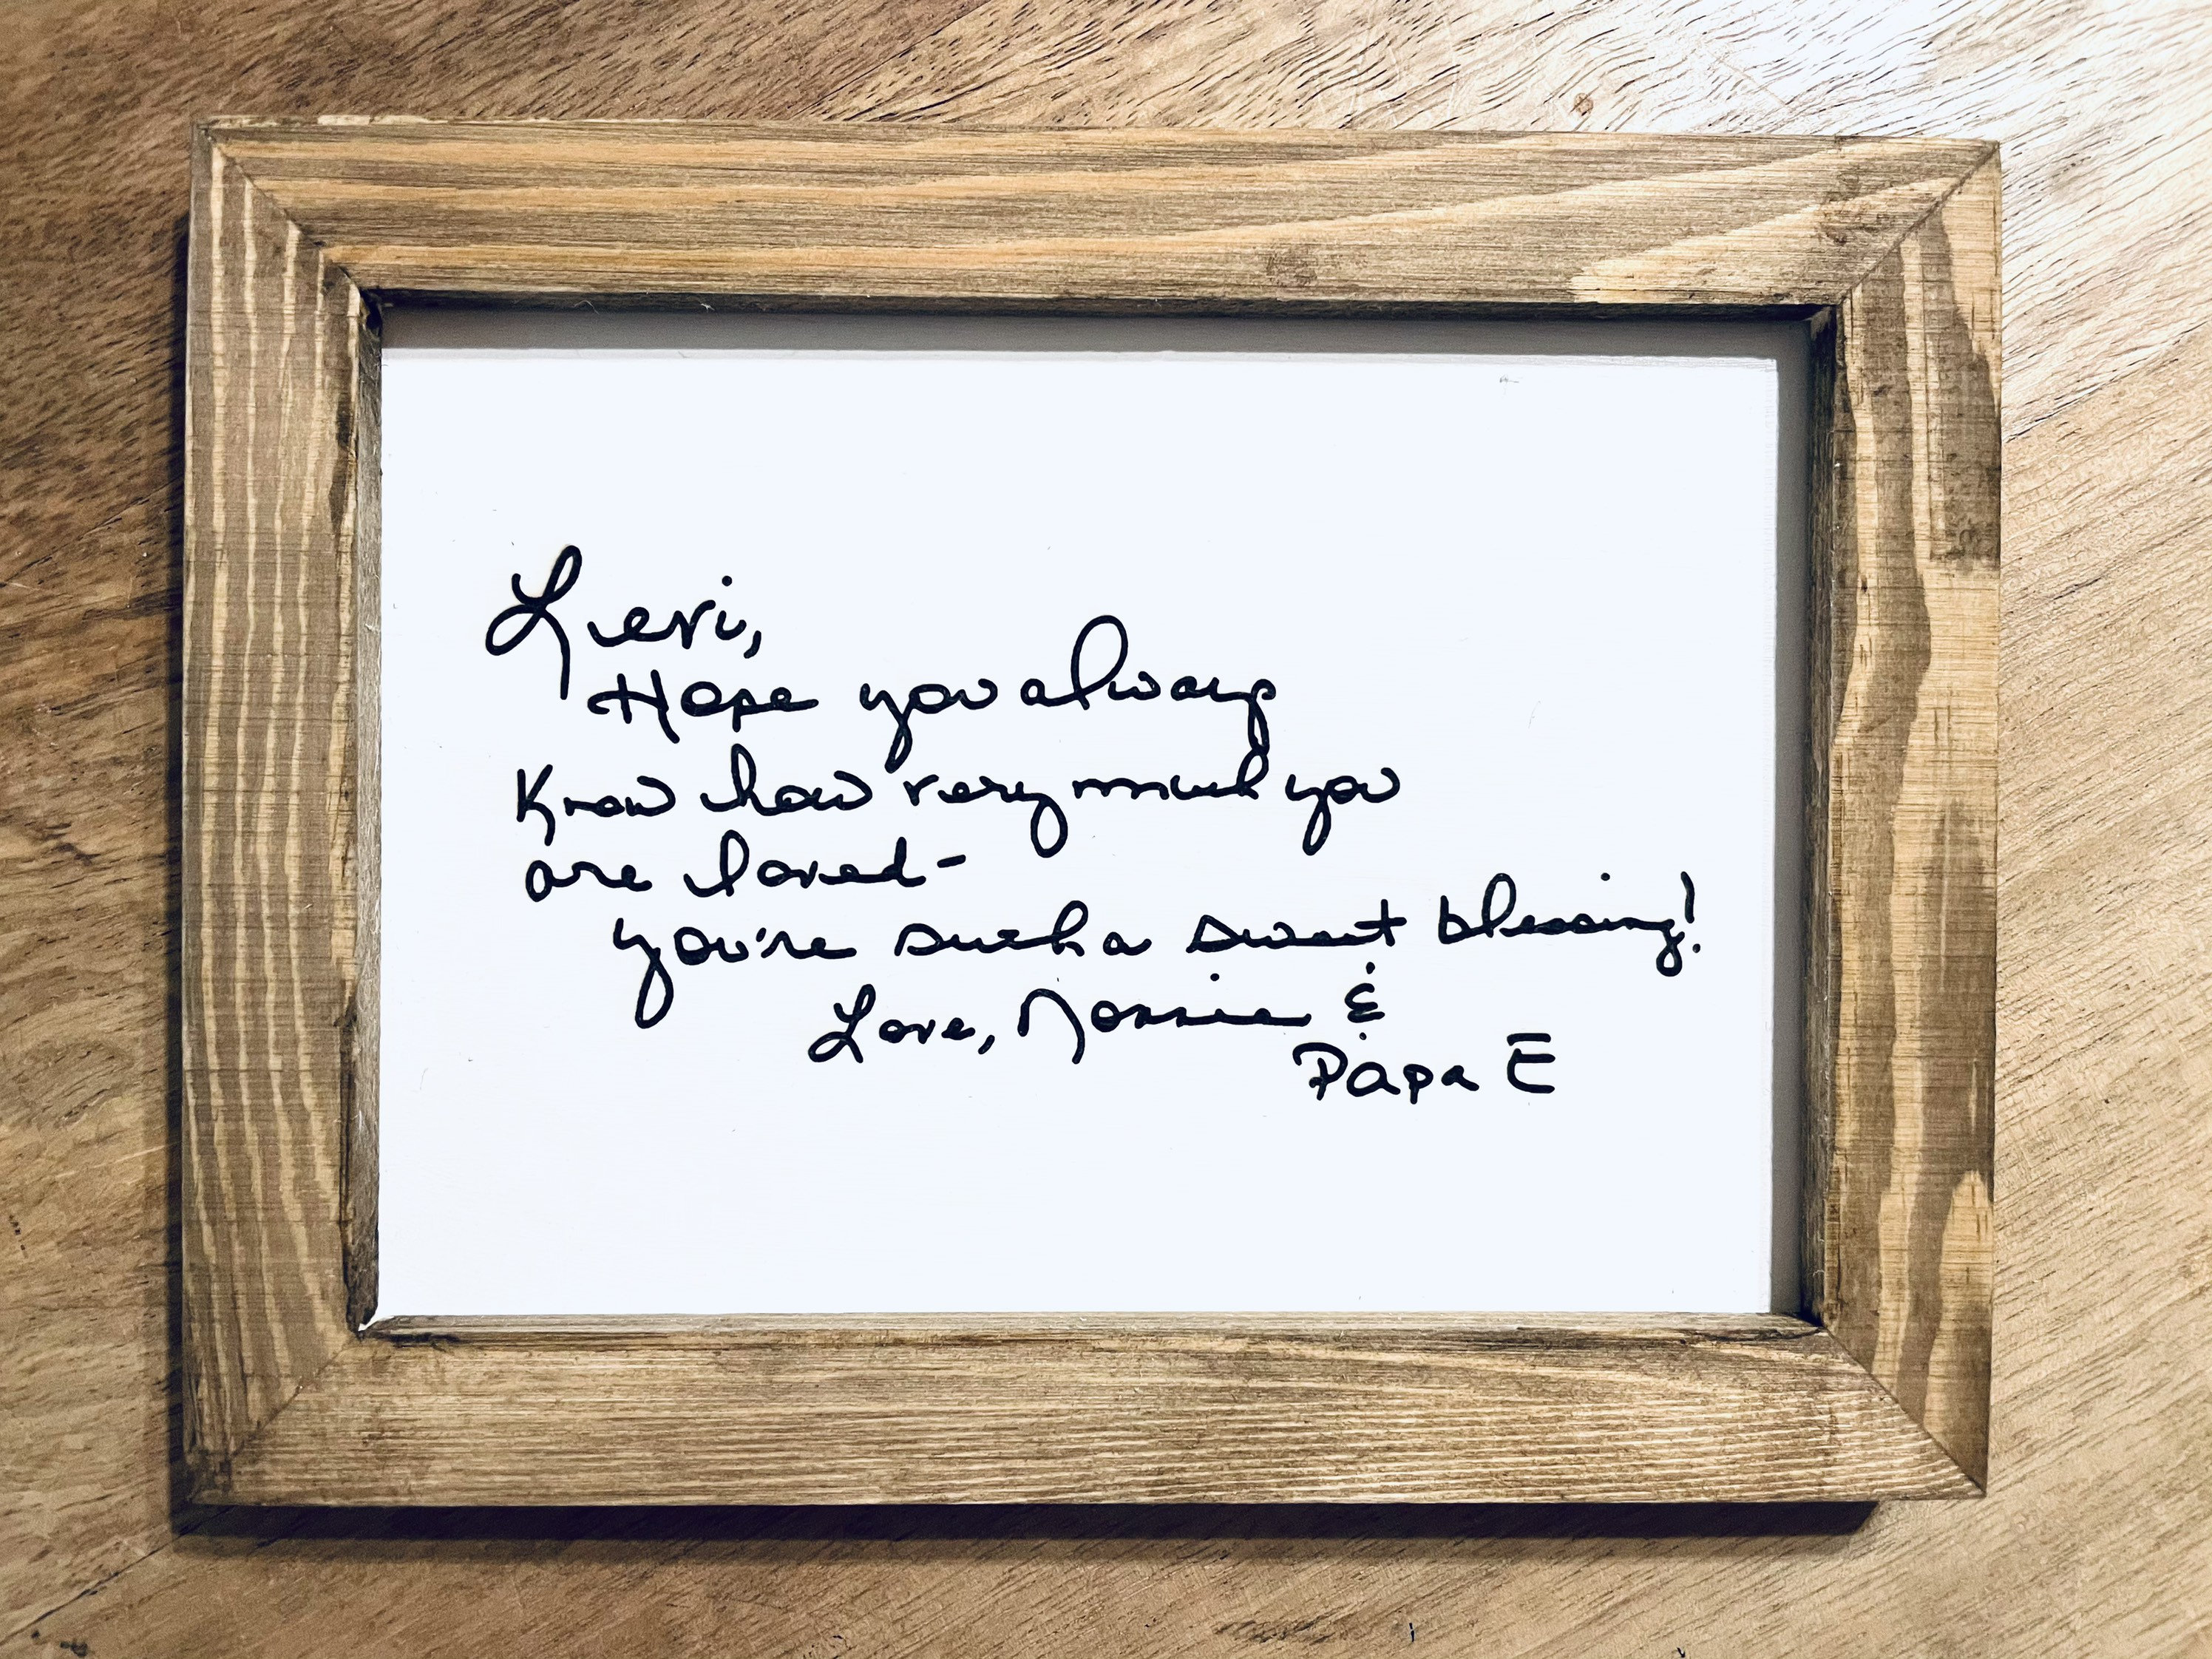 Levi,
Hope you always
Know how very much you
are loved-
you're such a sweet blessing!
Love, Nonnie &
Papa E